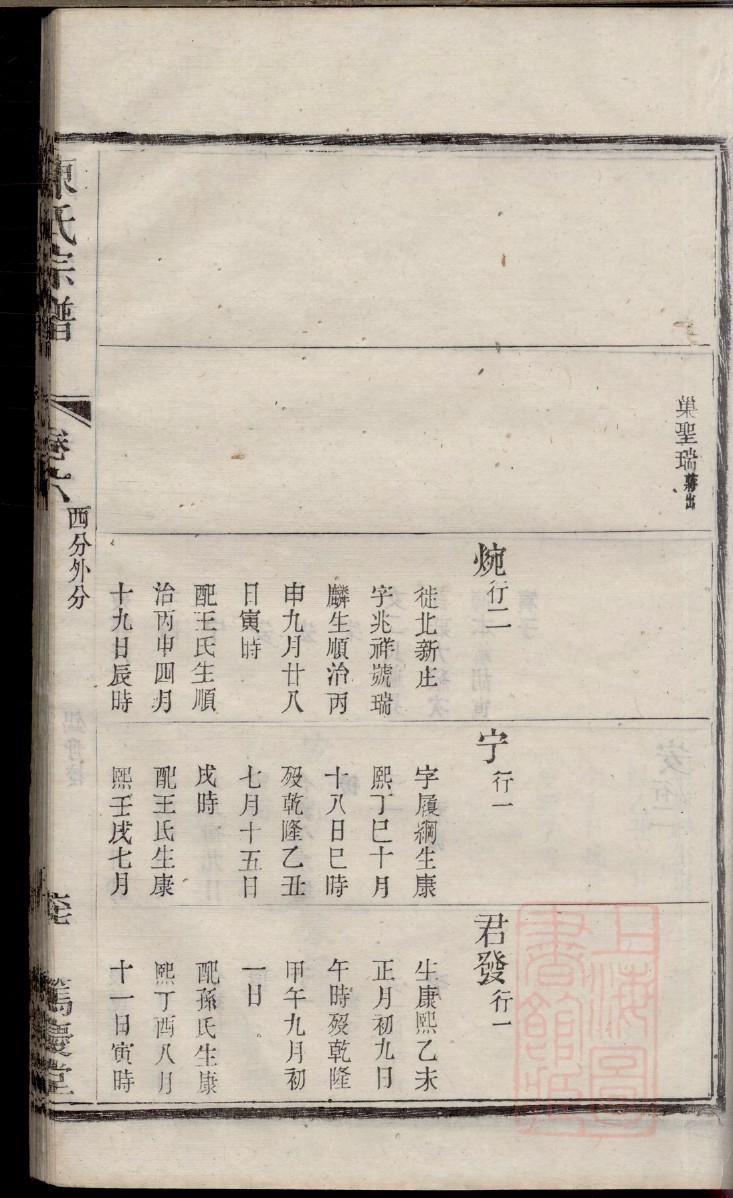 巢聖瑞蔣出
㷄行二
徙北新庄
字兆祥號瑞
麟生順治丙
申九月廿八
日寅時
配王氏生順
治丙申四月
十九日辰時
宁行一
字履綱生康
熙丁巳十月
十八日巳時
歿乾隆乙丑
七月十五日
戌時
配王氏生康
熙壬戌七月
君發行一
生康熙乙未
正月初九日
午時歿乾隆
甲午九月初
一日
配孫氏生康
熙丁酉八月
十一日寅時
陳氏宗譜
卷六
西分外分
篤慶堂
上海圖
書館藏